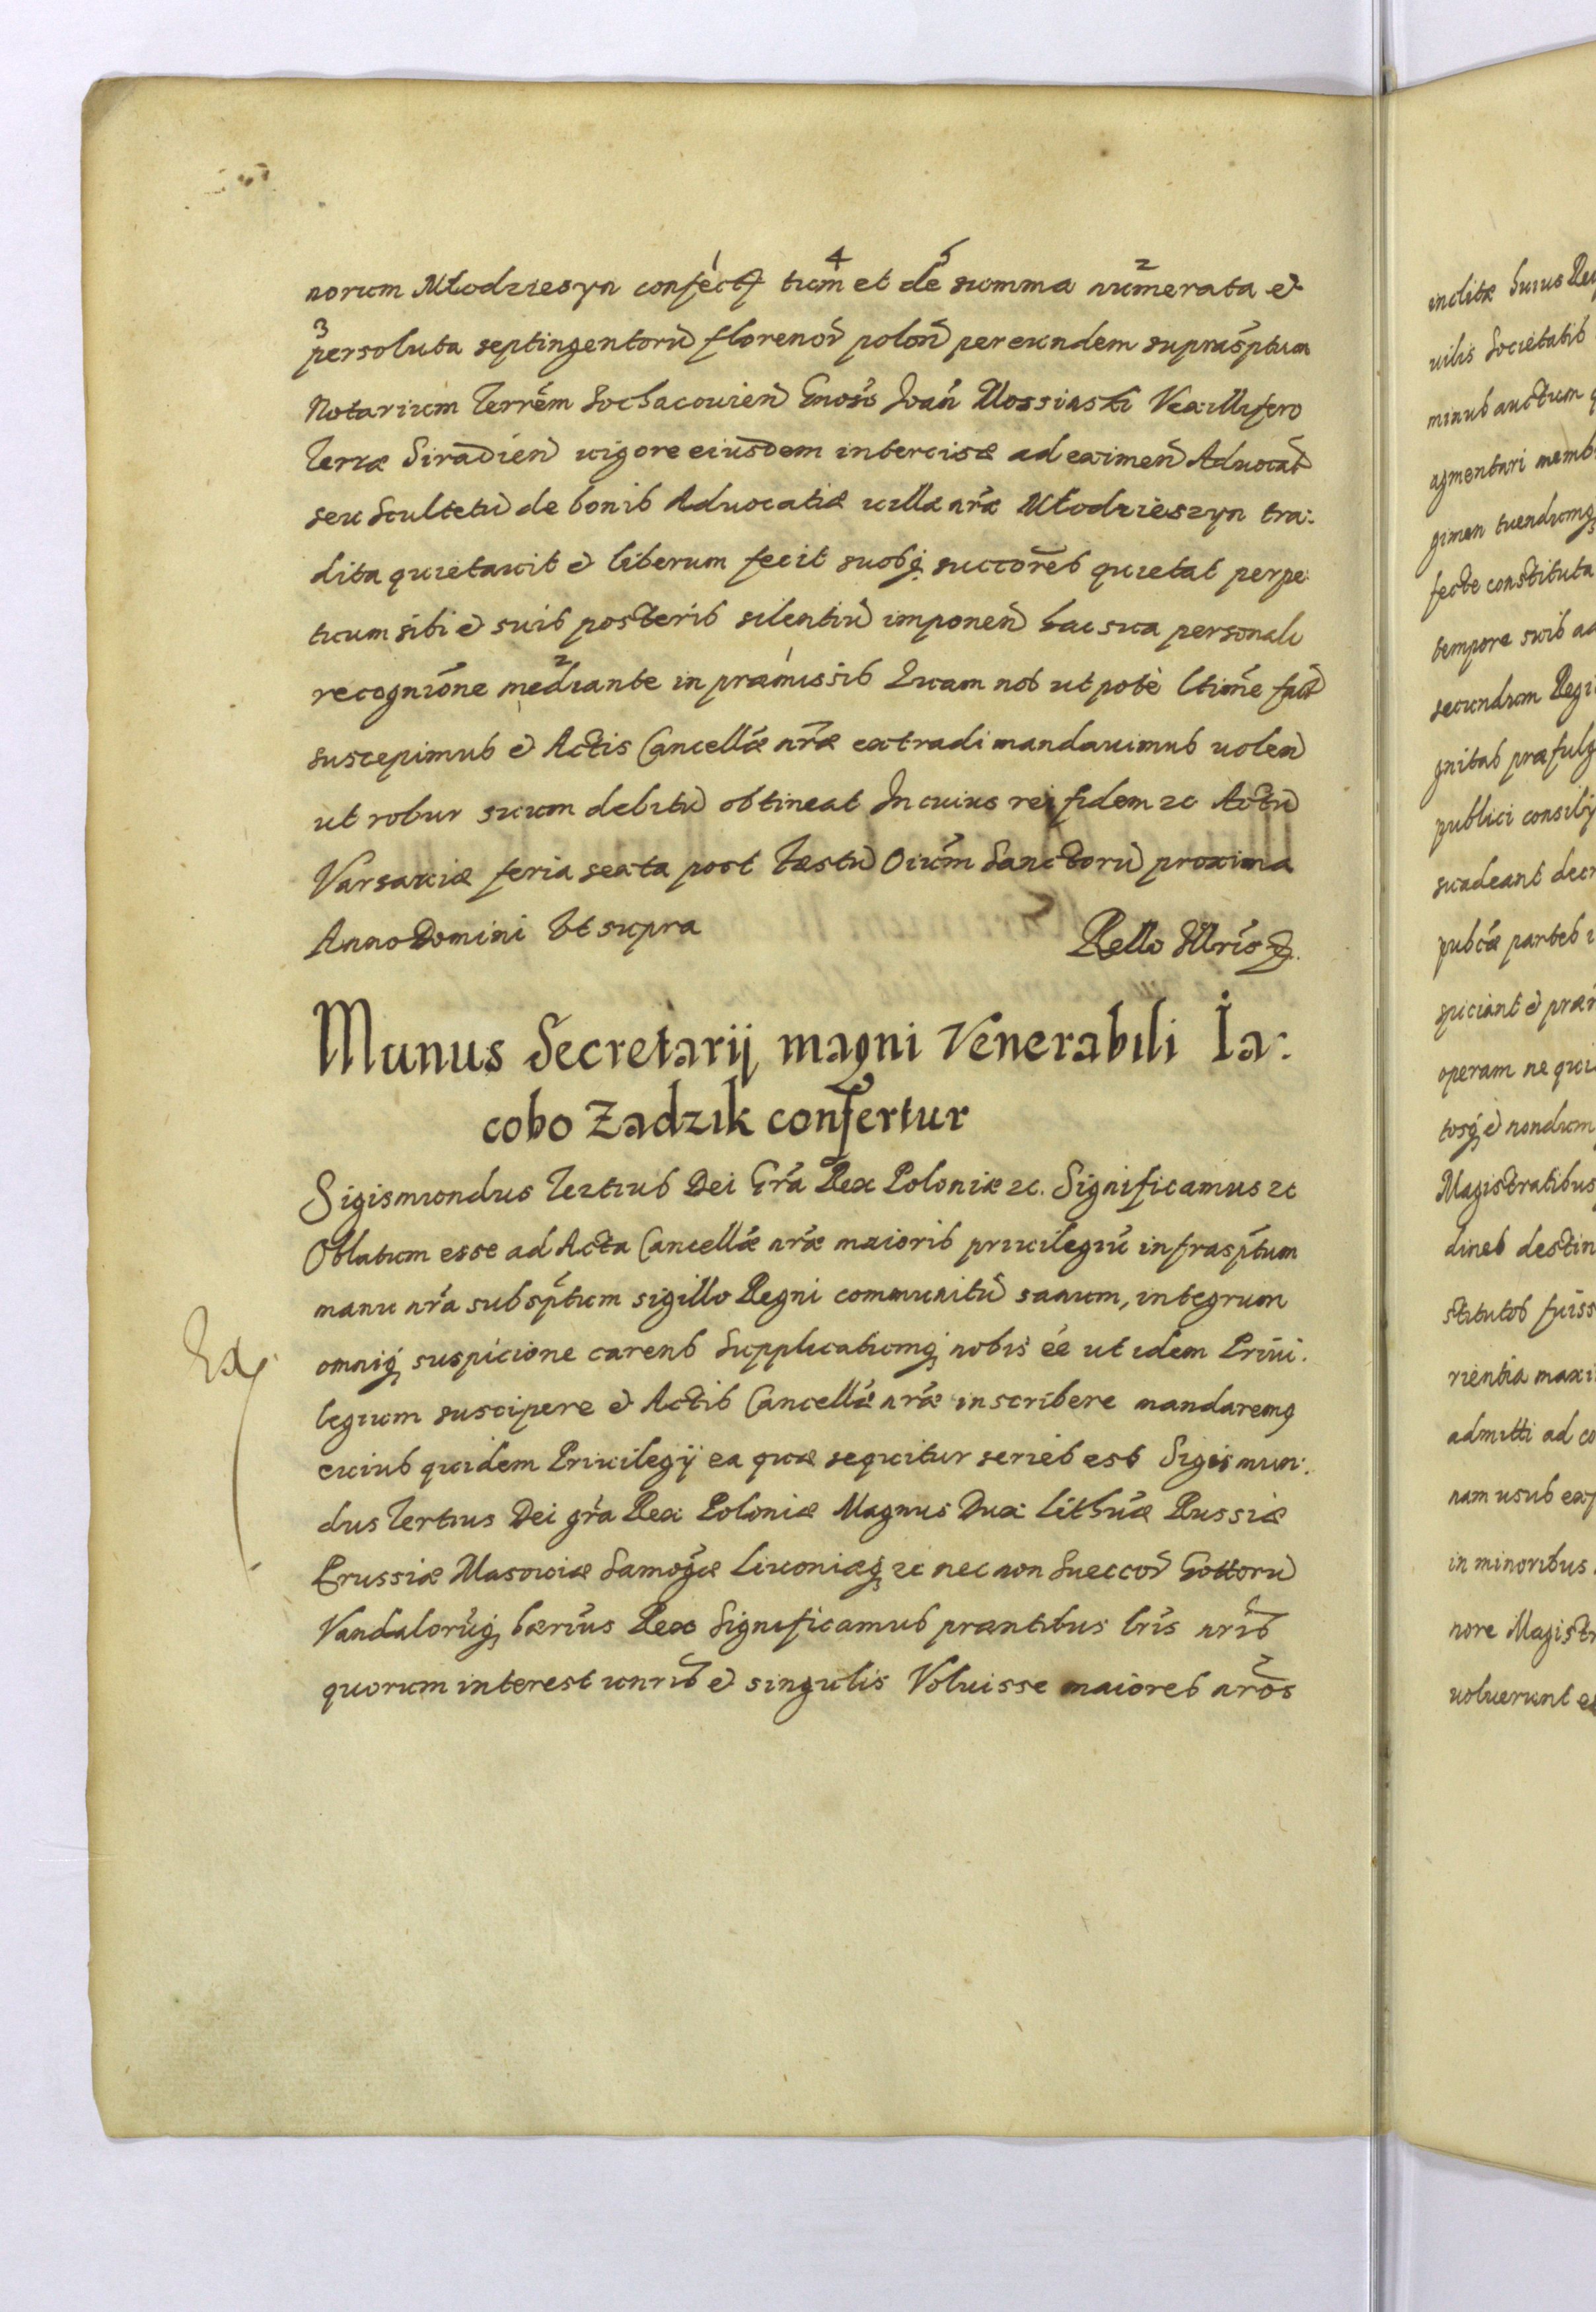 norum Młodziesyn confect tum et de summa numerata et
persoluta septingentorũ florenor̃ polon̄ per eundem suprasp̃tum
Notarium Terrem̃ Sochacouien̄ Gnoso Joan̄ Mossinski Vexillifero
Terræ Siradien̄ uigore eiusdem intercisæ ad eximen̄ Aduocat̄
seu Scultetũ de bonis Aduocatiæ uillæ nræ Młodzieszyn tra:
dita quietauit et liberum fecit suosq succores quietat perpe:
tuum sibi et suis posteris silentiũ imponen̄ hac sua personali
recognione mediante in præmissis Quam nos ut pote ltime fact̄
suscepimus et Actis Cancellæ nræ extradi mandauimus uolen̄
ut robur suum debitũ obtineat In cuius rei fidem zc Actũ
Varsauiæ feria sexta post Fæstũ Oium̃ Sanctorũ proxima
Anno Domini Vt supra
Rello Illris
Munus Secretarij magni Venerabili Ia:
cobo Zadzik confertur
Sigismundus Tertius Dei Gra Rex Poloniæ zc. Significamus zc
Oblatum esse ad Acta Cancellæ nræ maioris priuilegiũ infrasp̃tum
manu nra subsp̃tum sigillo Regni communitũ sanum, integrum
omniq suspicione carens Supplicatumq nobis ee ut idem Priui:
Ex
legium suscipere et Actis Cancellæ nræ inscribere mandaremq
cuius quidem Priuilegij ea quæ sequitur series est Sigismun:
dus Tertius Dei gra Rex Poloniæ Magnus Dux Lithuæ Russiæ
Prussiæ Masouiæ Samogæ Liuoniæq zc nec non Sueccor̃ Gottorũ
Vandalorũq hærius Rex Significamus præntibus lris nris
quorum interest unris et singulis Voluisse maiores nros
inclitæ huius Re
uilis Societatis
minus auctum
agmentari memb
gimen tuendumq
fecte constituta
tempore suis ad
secundum Regi
gnitas præfulg
publici consilij
suadeant decr
pubcæ partes
spiciant et præ
operam ne qui
tosq et nondum
Magistratibus
dines destin
stitutos fuiss
rientia maxi
admitti ad co
nam usus exp
in minoribus
nore Magistr
uoluerunt